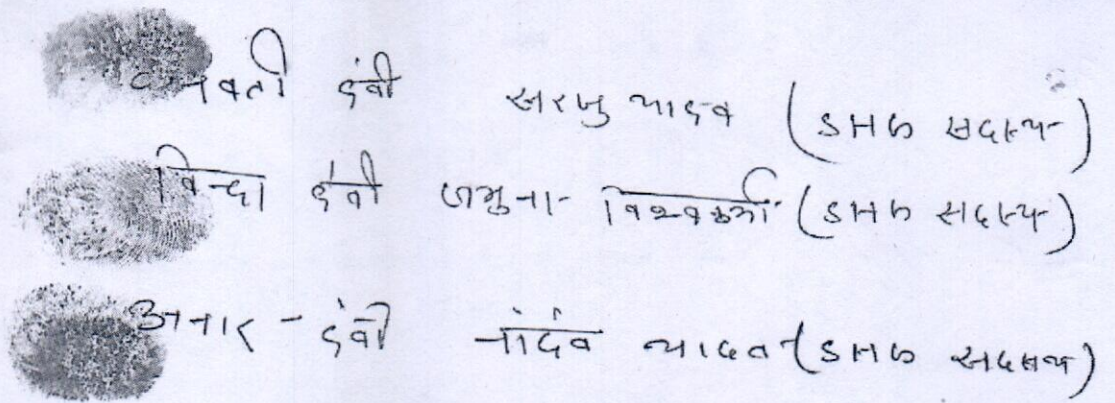 देवी सरजु यादव (SHG सदस्य)
विन्दा देवी जमुना विश्वकर्मा (SHG सदस्य)
अनार - देवी नांदेव यादव (SHG सदस्य)